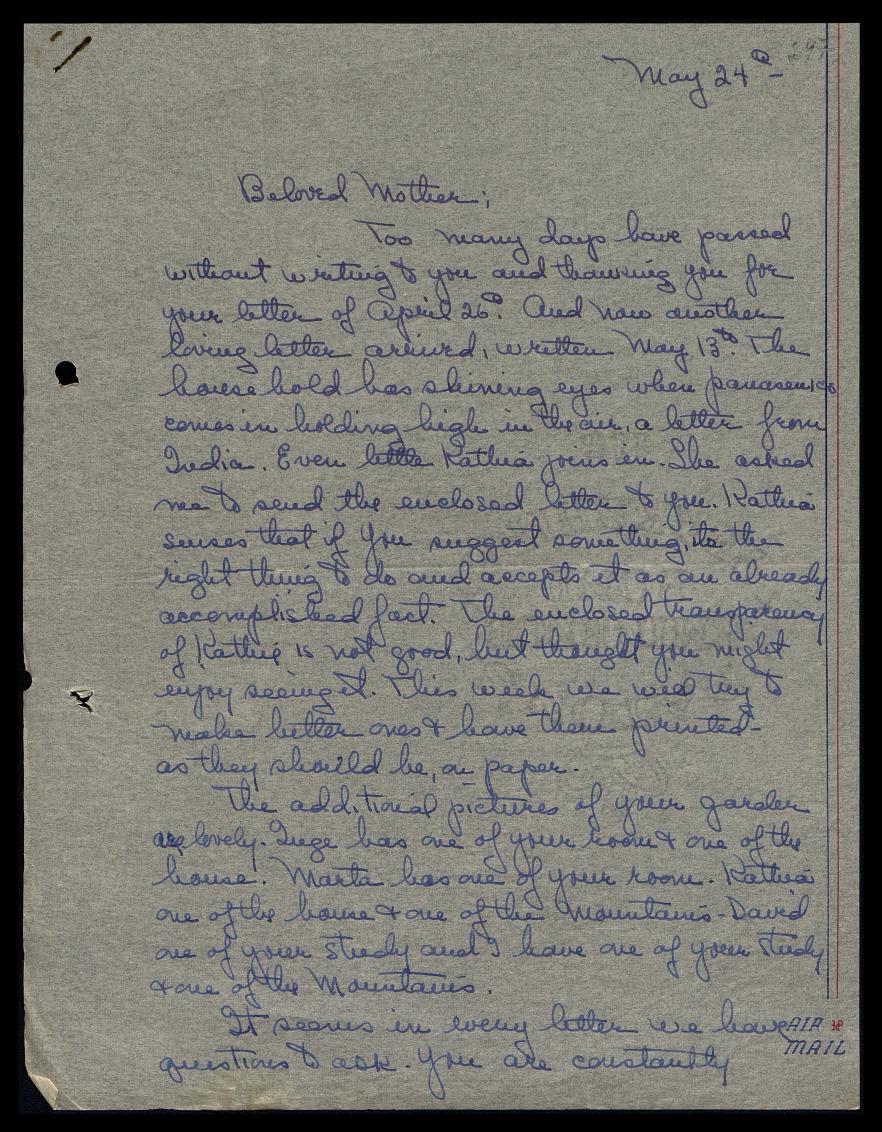 247
May 24th
Beloved Mother;
Too many days have passed
without writing to you and thanking you for
your letter of April 26th. And now another
loving letter arrived, written May 13th. The
household has shining eyes when
comes in holding high in the air, a letter from
India. Even little Kathia joins in. She asked
me to send the enclosed letter to you. Kathia
senses that if you suggest something, its the
right thing to do and accepts it as an already
accomplished fact. The enclosed transparency
of Kathie is not good, but thought you might
enjoy seeing it. This week we will try to
make better ones & have them printed-
as they should be, on paper.
The additional pictures of your garden
are lovely. Inge has one of your room & one of the
house. Marta has one of your room. Kathia
one of the house & one of the Mountains - David
one of your study and I have one of your study
& one of the Mountains.
It seems in every letter we have
questions to ask. You are constantly
AIR
MAIL